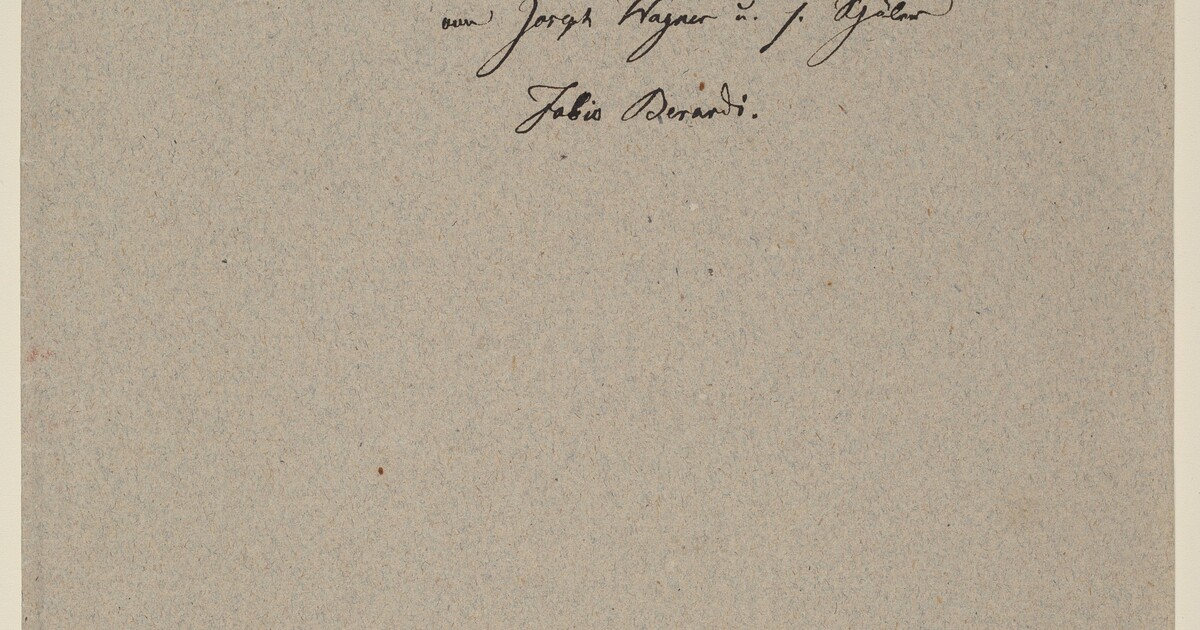 von Joseph Wagner u. s. Schüler
Fabio Berardi.